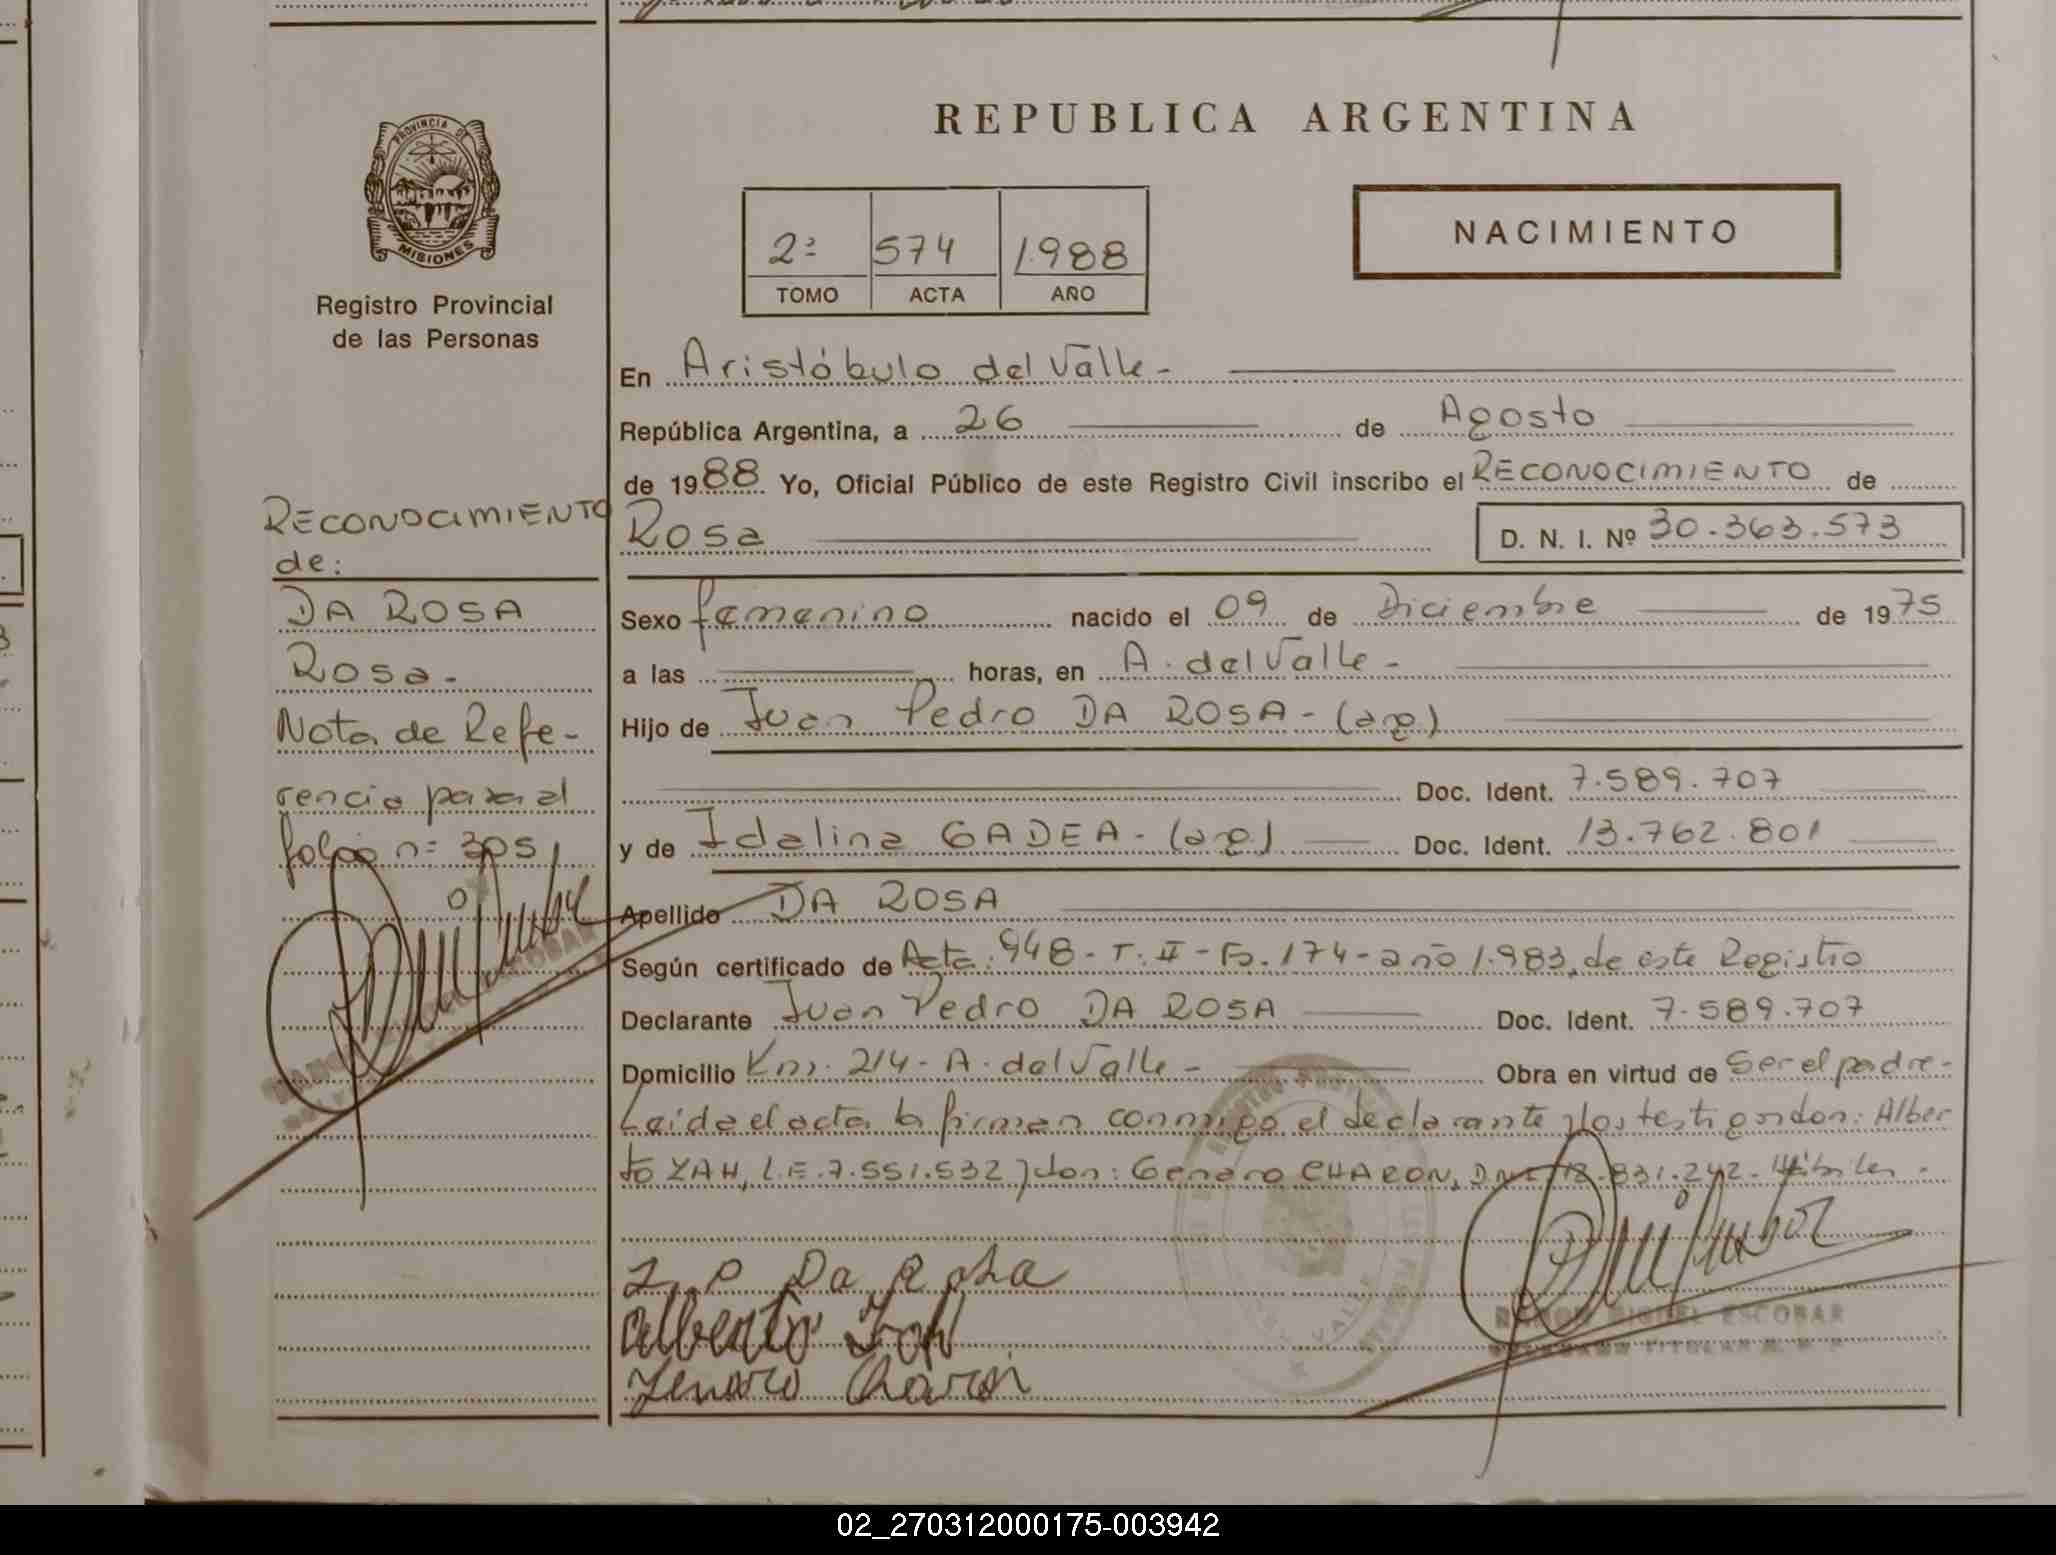 REPUBLICA ARGENTINA
PROVINCIA DE
MISIONES
Registro Provincial
de las Personas
2ª 574 1.988
TOMO ACTA AÑO
NACIMIENTO
En Aristóbulo del Valle-
República Argentina, a 26 de Agosto
de 1988 Yo, Oficial Público de este Registro Civil inscribo el RECONOCIMIENTO de
Rosa D. N. I. Nº 30.363.573
Sexo femenino nacido el 09 de Diciembre de 1975
a las horas, en A. del Valle-
Hijo de Juan Pedro DA ROSA-(arg)
Doc. Ident. 7.589.707
y de Idalina GADEA-(arg) Doc. Ident. 13.762.801
Apellido DA ROSA
Según certificado de Acta: 948-T.II-Fº.174-año 1.983, de este Registro
Declarante Juan Pedro DA ROSA Doc. Ident. 7.589.707
Domicilio Km. 214-A. del Valle- Obra en virtud de Ser el padre-
Leída el acta la firman conmigo el declarante y los testigos don: Alber
to ZAH, L.E.7.551.532 y don: Genaro CHARON, DNI 831.242. Hábiles-
J. P Da Rosa
Alberto Zah
Genaro Charon
RAMON MIGUEL ESCOBAR
RECONOCIMIENTO
de:
DA ROSA
Rosa-
Nota de Refe-
rencia para el
folio nº 305
02_270312000175-003942